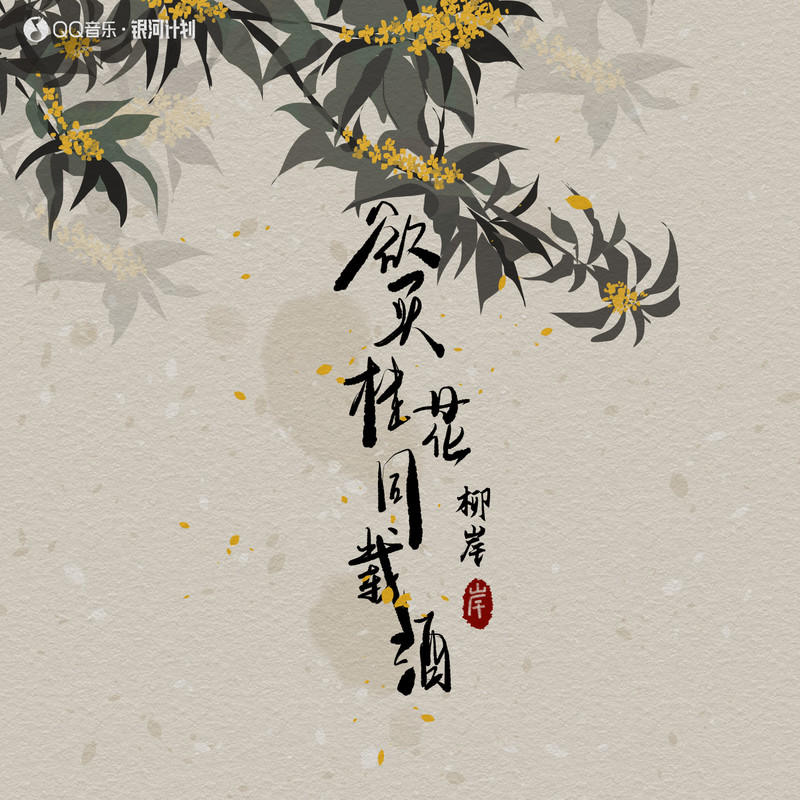 QQ音乐·银河计划
欲买桂花同载酒
柳岸
岸